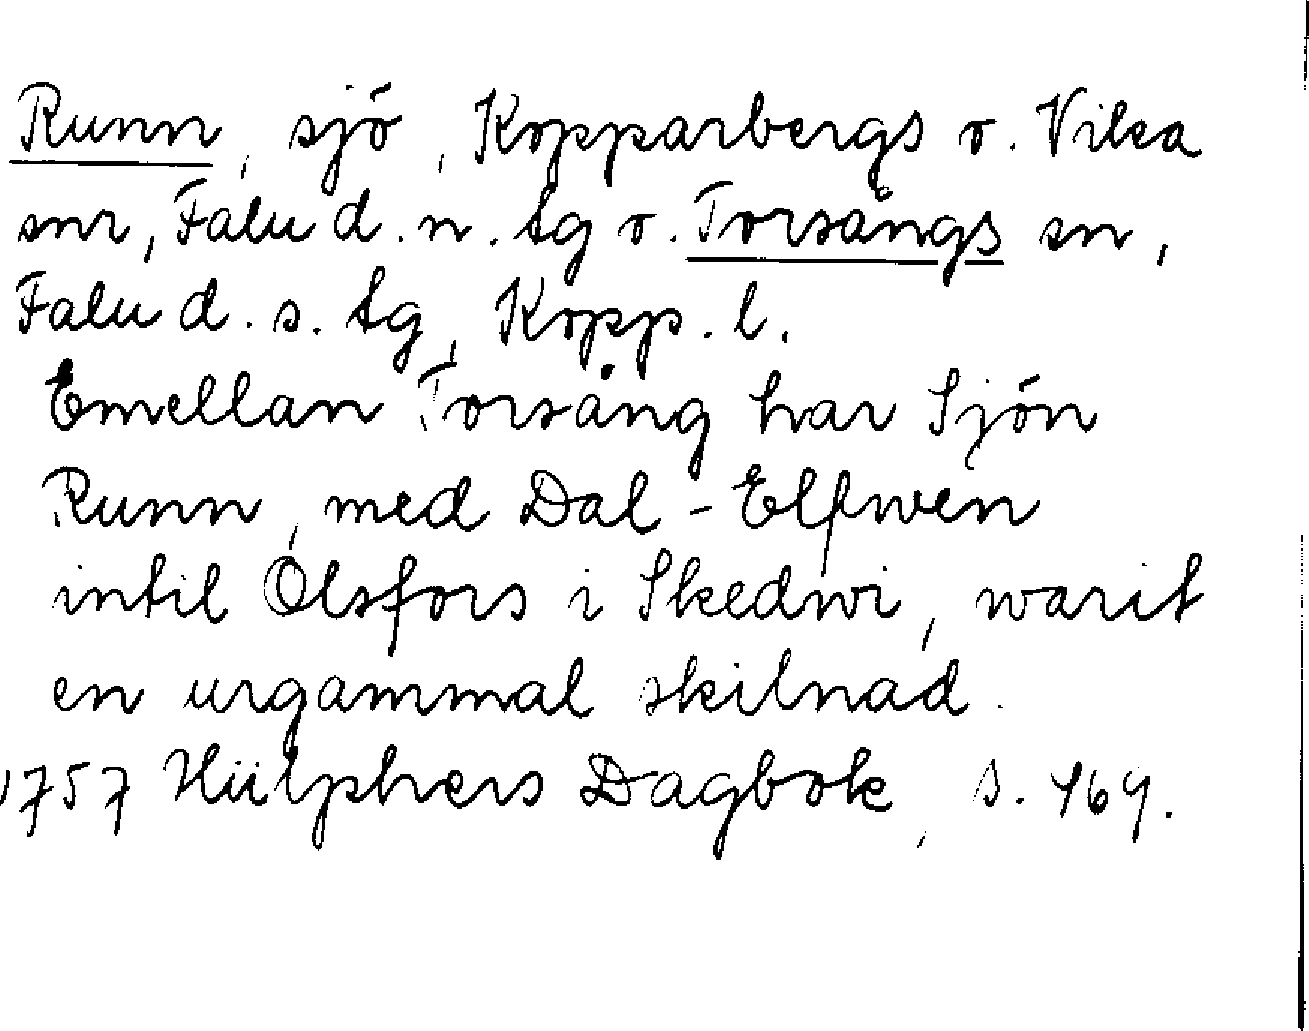 Runn, sjö, Kopparbergs o. Vika
snr, Falu d. n. tg o. Torsångs sn,
Falu d. s. tg, Kopp. l.
Emellan Torsång har Sjön
Runn, med Dal-Elfwen
intil Olsfors i Skedwi, warit
en urgammal skilnad.
1757 Hülphers Dagbok, s. 469.